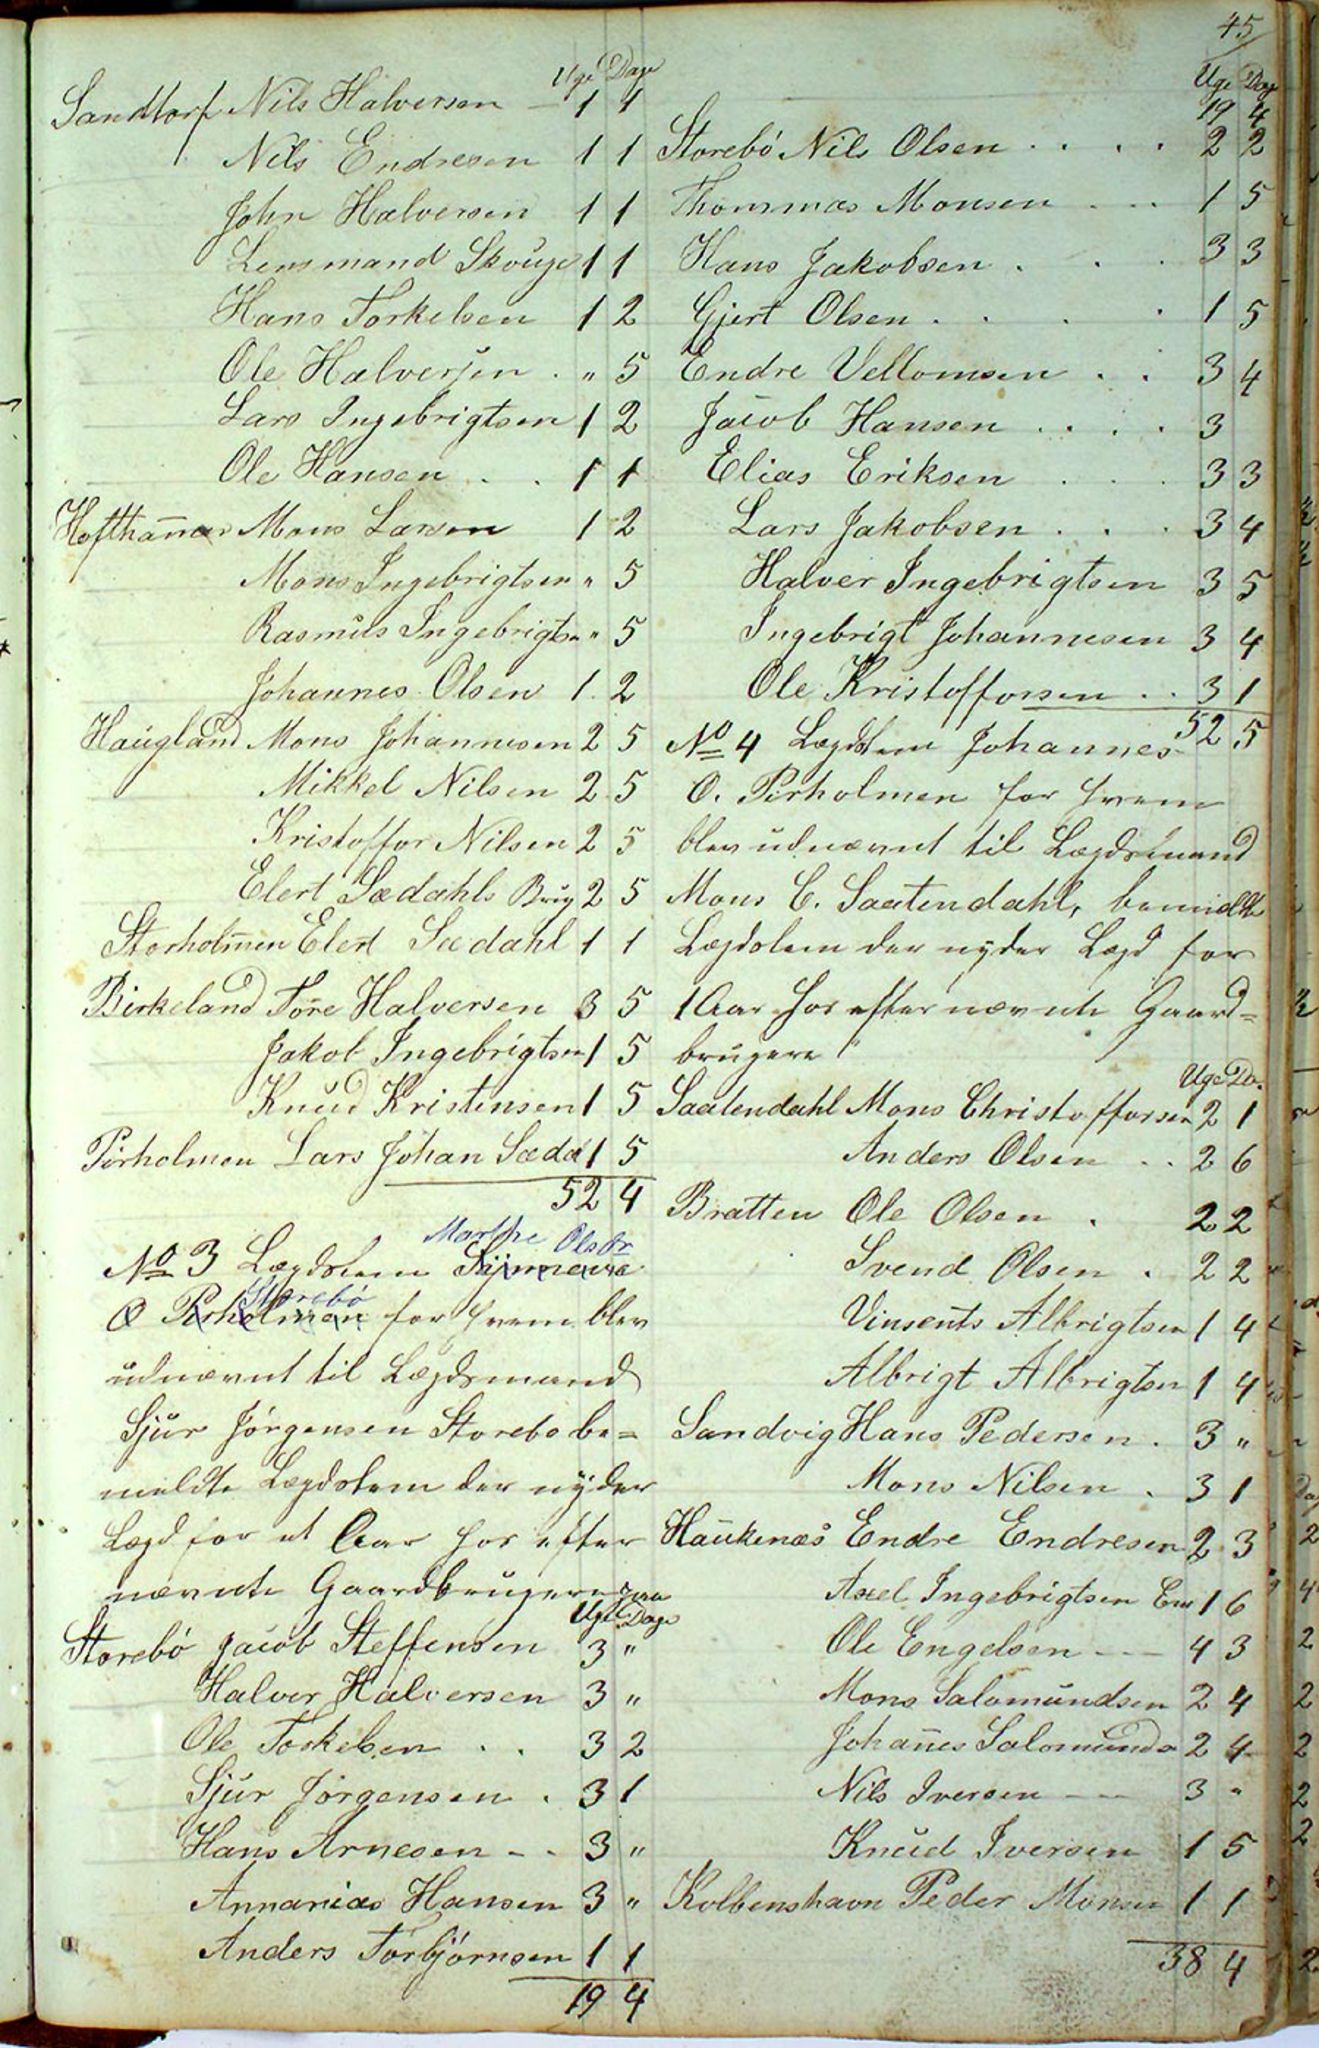 45
Uge Dage
Sandtorf Nils Halversen 1 1
Nils Endresen 1 1
John Halversen 1 1
Lensmand Skouge 1 1
Hans Torkelsen 1 2
Ole Halversen . " 5
Lars Ingebrigtsen 1 2
Ole Hansen . . 1 1
Hofthamar Mons Larsen 1 2
Mons Ingebrigtsen " 5
Rasmus Ingebrigtsn " 5
Johannes Olsen 1 2
Haugland Mons Johannesen 2 5
Mikkel Nilsen 2 5
Kristoffor Nilsen 2 5
Elert Sædahls Brug 2 5
Storholmen Elert Sædahl 1 1
Birkeland Tore Halversen 3 5
Jakob Ingebrigtsen 1 5
Knud Kristensen 1 5
Pirholmen Lars Johan Sædal 1 5
52 4
Marthe Olsdr
No 3 Lægdslem
Storebö
O Pirholmen for hvem blev
udnævnt til Lægdsmand
Sjur Jörgensen Storebo be=
meldte Lægdslem der nyder
Lægd for et Aar hos efter
nævnte Gaardbrugere
Uge Dage
Storebö Jacob Steffensen 3 "
Halver Halversen 3 "
Ole Torkelsen . . 3 2
Sjur Jörgensen . 3 1
Hans Arnesen - . 3 "
Annanias Hansen 3 "
Anders Torbjörnsen 1 1
19 4
Uge Dage
19 4
Storebö Nils Olsen . . . . 2 2
Thommas Monsen . . . 1 5
Hans Jakobsen . . . 3 3
Gjert Olsen . . . . 1 5
Endre Vellomsen . . 3 4
Jacob Hansen . . . . 3
Elias Eriksen . . . 3 3
Lars Jakobsen . . . 3 4
Halver Ingebrigtsen 3 5
Ingebrigt Johannesen 3 4
Ole Kristoffersen . . 3 1
52 5
No 4 Lægdslem Johannes
O. Pirholmen for hvem
blev udnævnt til Lægdsmand
Mons C. Saatendahl, bemeldte
Lægdslem der nyder Lægd for
1 Aar hos efternævnte Gaard=
brugere
Uge Da.
Saatendahl Mons Christofforsen 2 1
Anders Olsen . . 2 6
Bratten Ole Olsen . 2 2
Svend Olsen . 2 2
Vinsents Albrigtsen 1 4
Albrigt Albrigtsen 1 4
Sandvig Hans Pedersen . 3 "
Mons Nilsen . 3 1
Haukenæs Endre Endresen 2 3
Axel Ingebrigtsen 1 6
Ole Engelsen - - - 4 3
Mons Salomundsen 2 4
Johanes Salomunds 2 4
Nils Iversen - - - 3 "
Knud Iversen 1 5
Kolbenshavn Peder Monsen 1 1
38 4